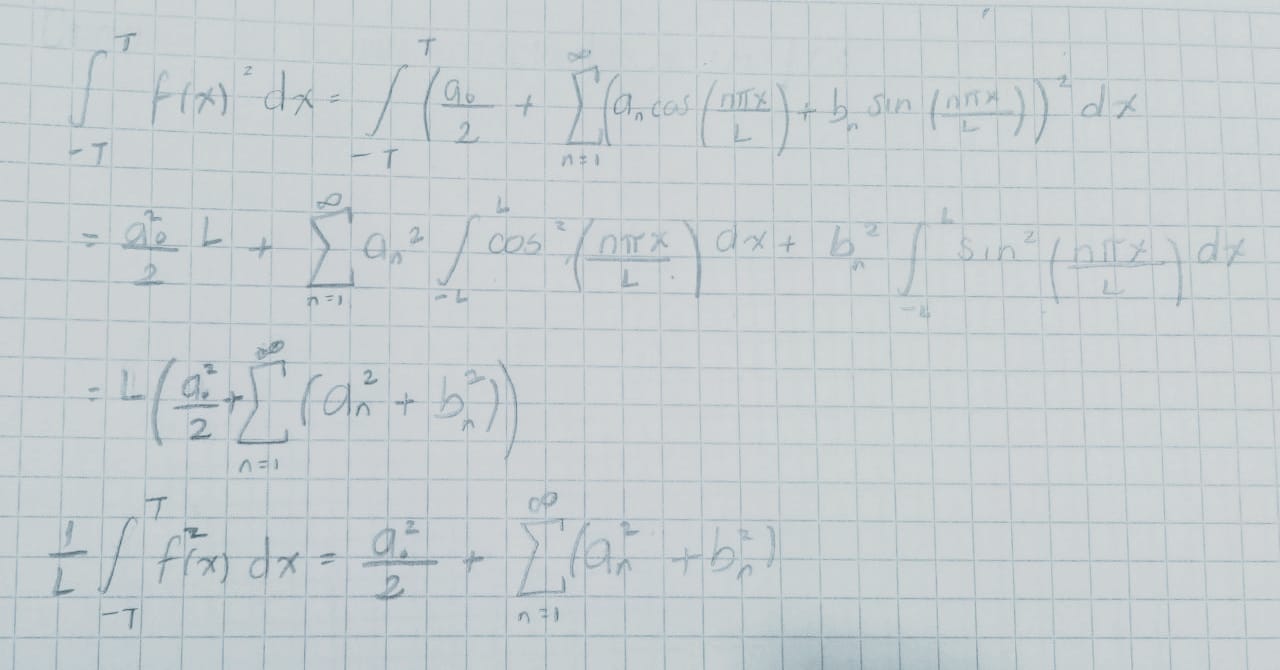 ∫_{-T}^{T} f(x)² dx = ∫_{-T}^{T} (a₀/2 + ∑_{n=1}^{∞} (aₙ cos(nπx/L) + bₙ sin(nπx/L))² dx
= a₀²/2 L + ∑_{n=1}^{∞} aₙ² ∫_{-L}^{L} cos²(nπx/L) dx + bₙ² ∫_{-L}^{L} sin²(nπx/L) dx
= L(a₀²/2 + ∑_{n=1}^{∞} (aₙ² + bₙ²))
1/L ∫_{-T}^{T} f²(x) dx = a₀²/2 + ∑_{n=1}^{∞} (aₙ² + bₙ²)